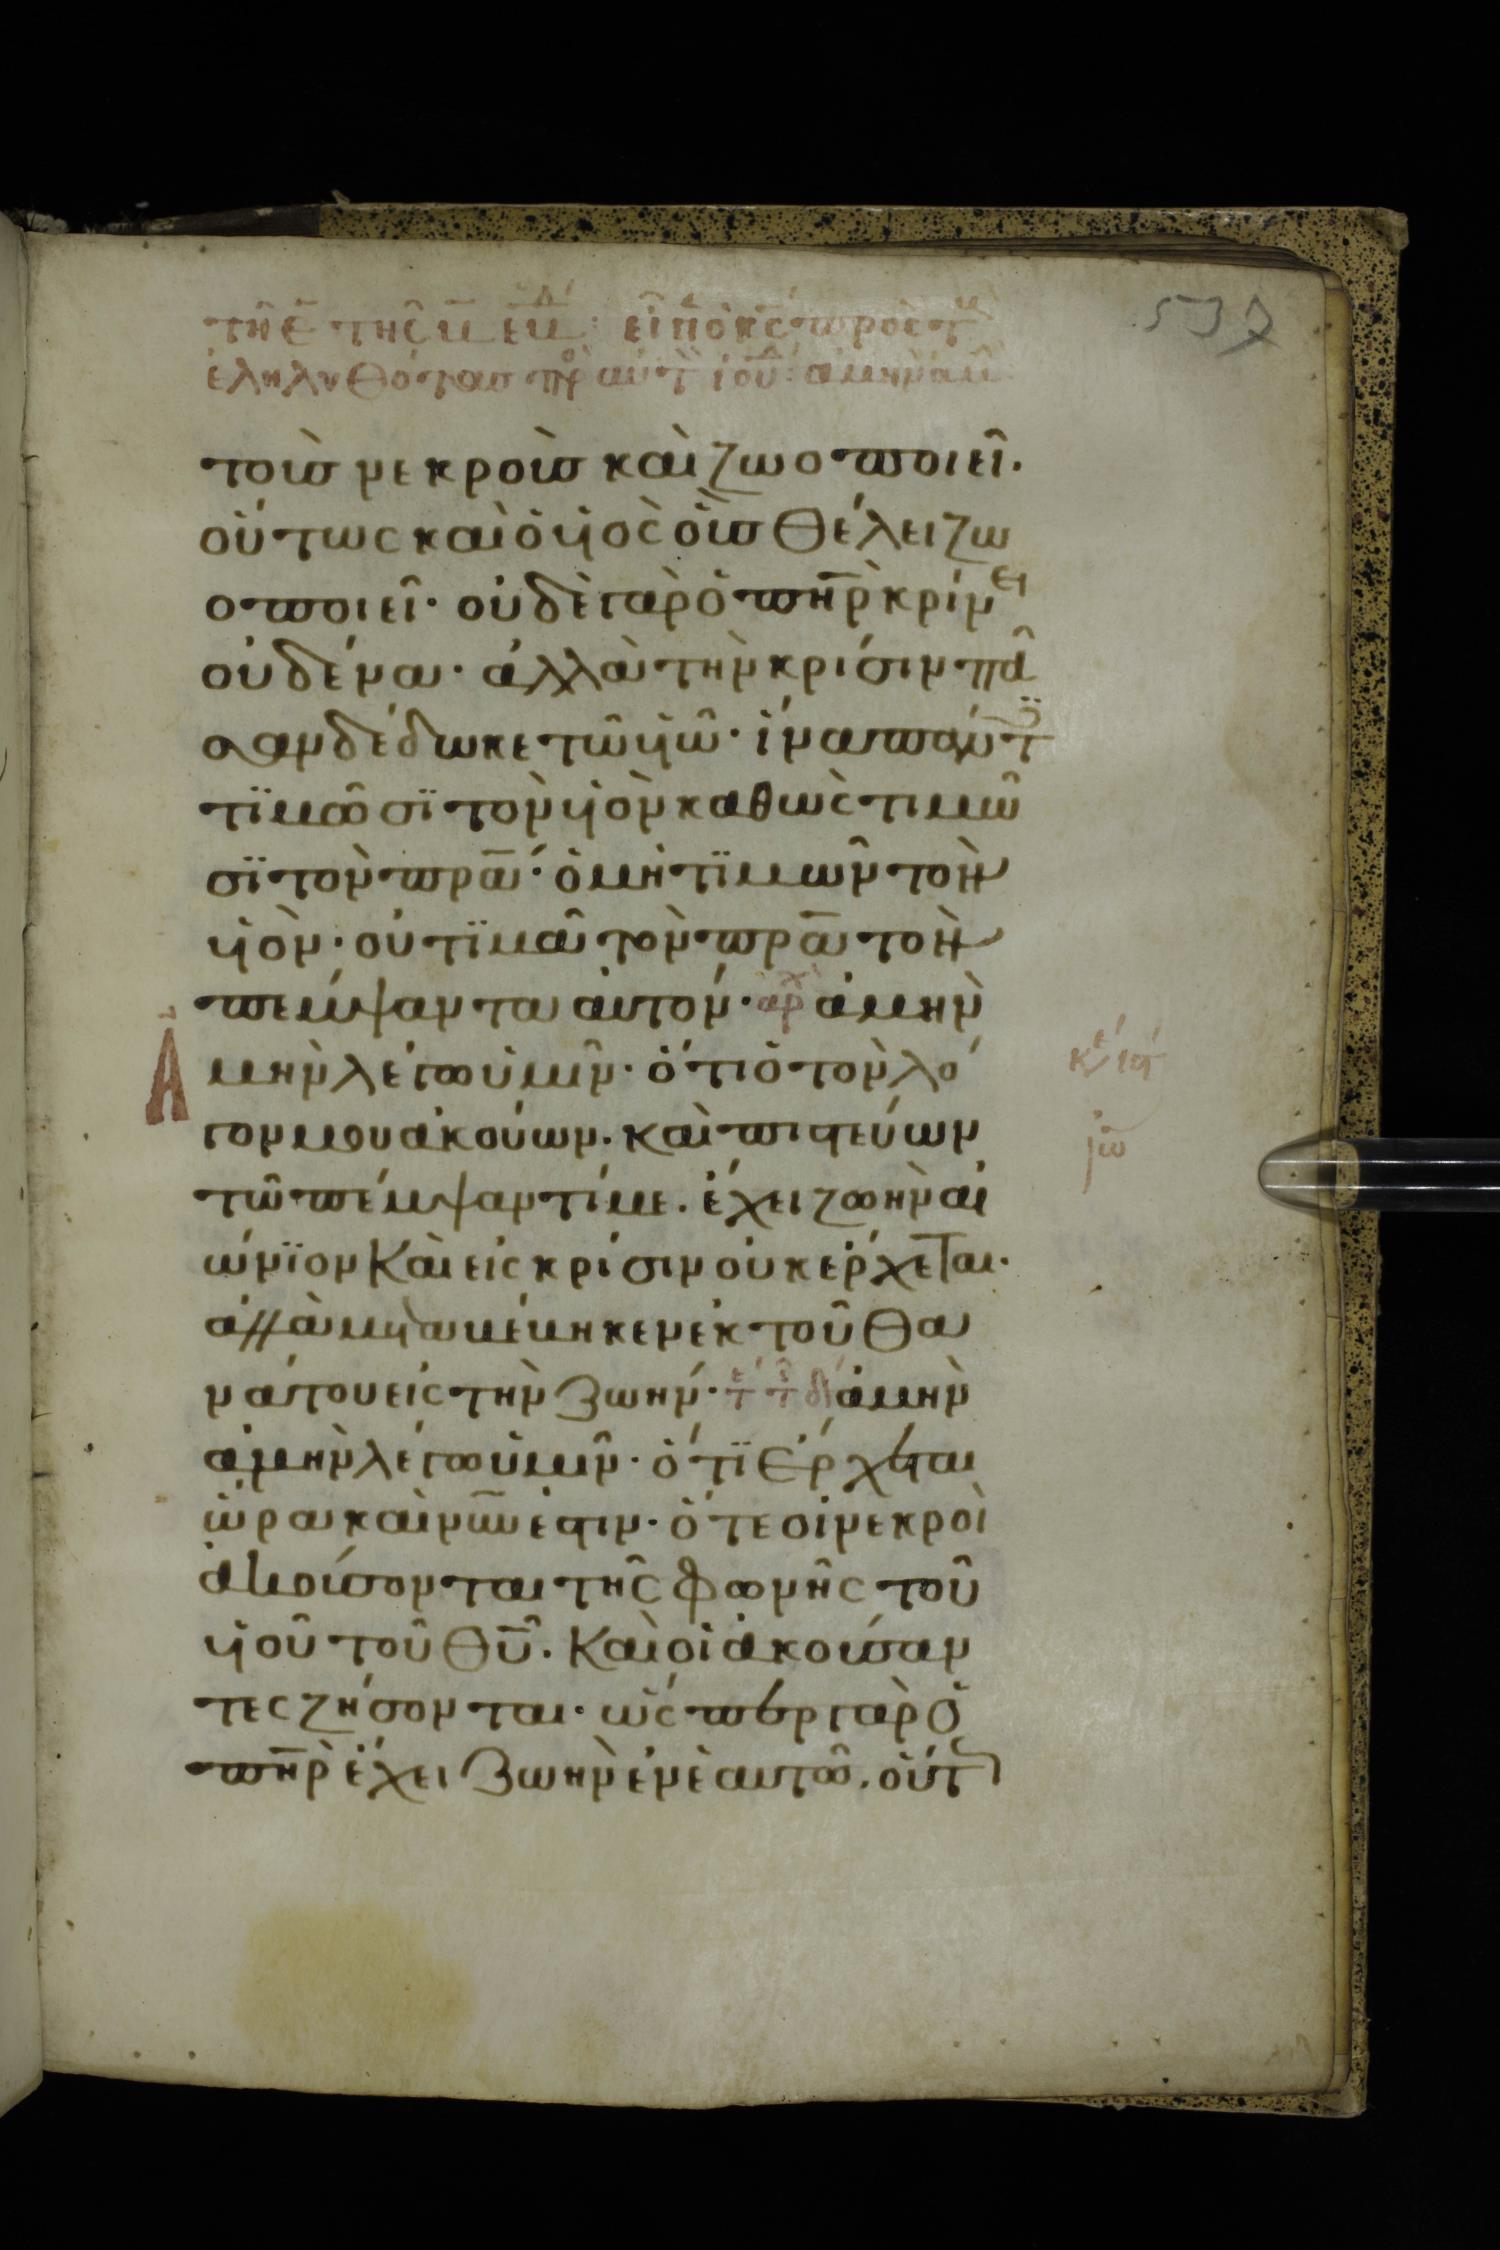 537
τῇ ε τῆς
ἐληλυθότας πρ αὐτ ἰου: ἀμὴν ἀμ
τοὺσ νεκροὺσ καὶ ζωοποιεῖ.
οὕτως καὶ ὁ ὑϊὸς οὓσ θέλει ζω
οποιεῖ· οὐδὲ γὰρ ὁ πηρ κρίνει
οὐδένα· ἀλλὰ τὴν κρίσιν πᾶ
σαν δέδωκε τῶ ὑϊῶ· ἵνα πάντ
τϊμῶσϊ τὸν ὑϊὸν καθὼς τιμῶ
σϊ τὸν πρα· ὁ μὴ τϊμῶν τὸν
ὑϊὸν· οὐ τϊμᾶ τὸν πρα τὸν
πέμψαντα αὐτόν· ἀρχ ἀμὴν
Ἀμὴν λέγω ὑμῖν· ὅτι ὁ τὸν λό
γον μου ἀκούων· καὶ πιστεύων
τῶ πέμψαντί με. ἔχει ζωὴν αἰ
ώνϊον καὶ εἰς κρίσιν οὐκ ἔρχεται·
ἐκ τοῦ θα
νάτου εἰς τὴν ζωήν· ἀμὴν
ἀμὴν λέγω ὑμῖν· ὅτϊ ἔρχεται
ὥρα καὶ νῦν ἐστιν· ὅτε οἱ νεκροὶ
ἀκούσονται τῆς φωνῆς τοῦ
ὑϊοῦ τοῦ θυ. καὶ οἱ ἀκούσαν
τες ζήσονται· ὥσπερ γὰρ ὁ
πηρ ἔχει ζωὴν ἐν ἑαυτῶ. οὕτ